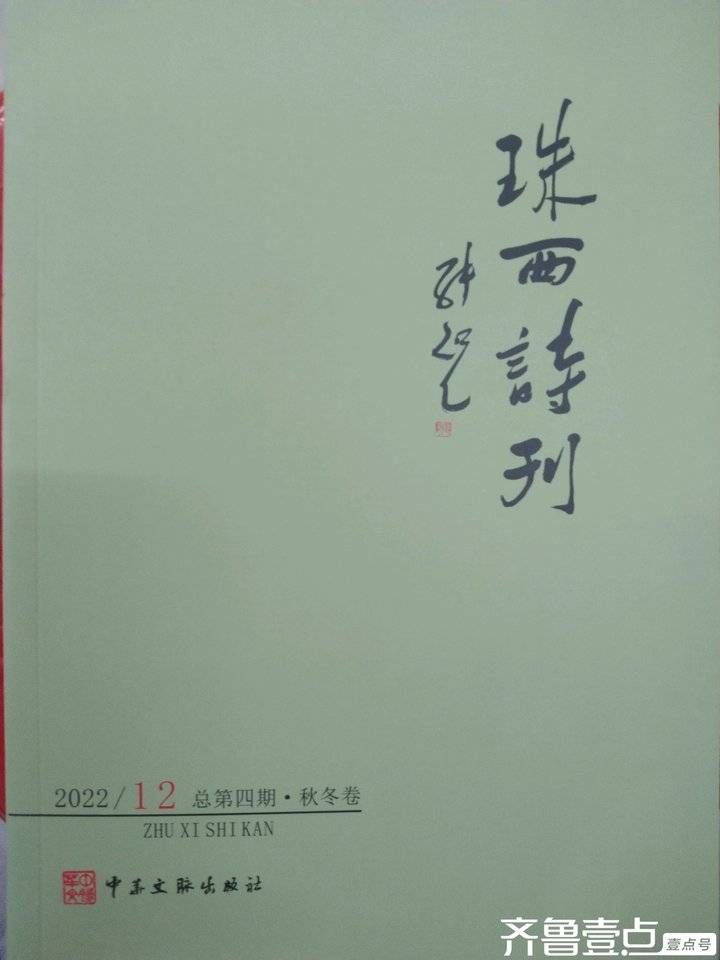 珠西詩刊
2022/12 总第四期·秋冬卷
ZHU XI SHI KAN
中华文脉出版社
齐鲁壹点
壹点号